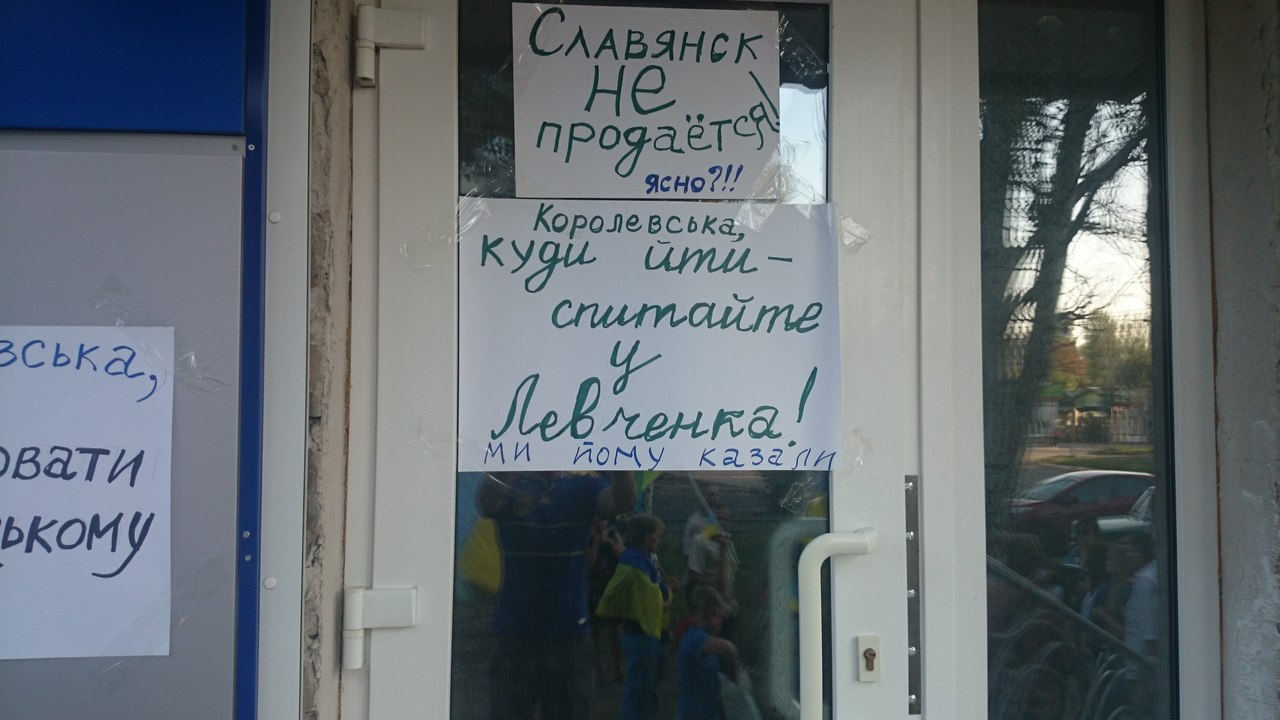 Славянск
не
продаётся!
ясно?!!
Королевська,
куди йти –
спитайте
у
Левченка!
ми йому казали
вська,
овати
ькому